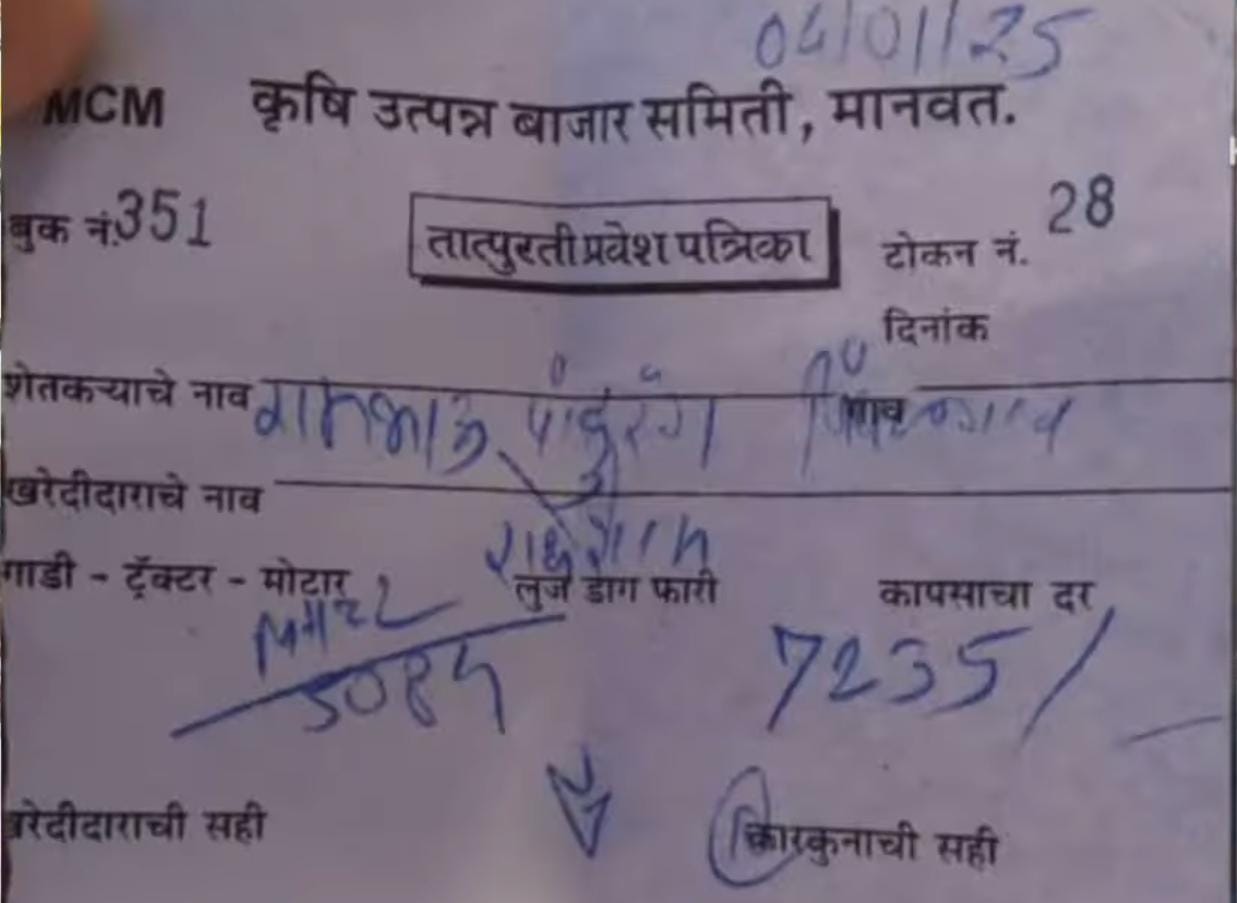 04/01/25
MCM कृषि उत्पन्न बाजार समिती, मानवत.
बुक नं. 351 तात्पुरती प्रवेश पत्रिका टोकन नं. 28
दिनांक
शेतकऱ्याचे नाव रामभाऊ पांडुरंग गाव
खरेदीदाराचे नाव राधेशाम
गाडी - ट्रॅक्टर - मोटार लुज डाग फारी कापसाचा दर
7235/-
खरेदीदाराची सही कारकुनाची सही